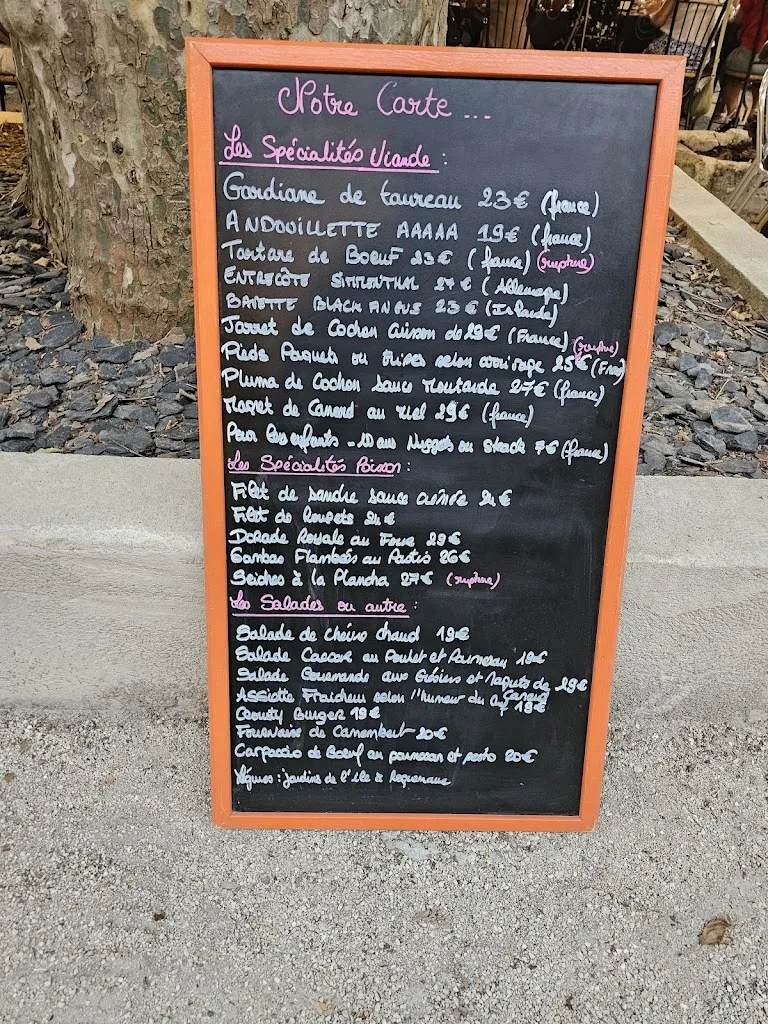 Notre Carte ...
Les Spécialités Viande :
Gardiane de taureau 23€ (france)
ANDOUILLETTE AAAAA 19€ (france)
Tartare de Boeuf 23€ (france) (rupture)
ENTRECÔTE SIMMENTHAL 27€ (Allemagne)
BAVETTE BLACK ANGUS 23€ (Irlande)
Jarret de Cochon Cuisson 29€ (France) (rupture)
Pieds Paquets ou selon arrivage 25€ (Fran)
Pluma de Cochon sauce moutarde 27€ (france)
Magret de Canard au miel 29€ (france)
Pour les enfants - 10 ans Nuggets ou steack 7€ (france)
Les Spécialités Poisson :
Filet de sandre sauce crémée 24€
Filet de Rougets 24€
Dorade Royale au Four 29€
Gambas Flambées au Pastis 26€
Seiches à la Plancha 27€ (rupture)
Les Salades ou autre :
Salade de chèvre chaud 19€
Salade Caesar au Poulet et Parmesan 19€
Salade Gourmande aux Gésiers et Magrets de Canard 19€
Assiette Fraicheur selon l'humeur du chef 19€
Crousty Burger 19€
Camembert 20€
Carpaccio de Boeuf au parmesan et pesto 20€
légumes : Jardins de l'île à